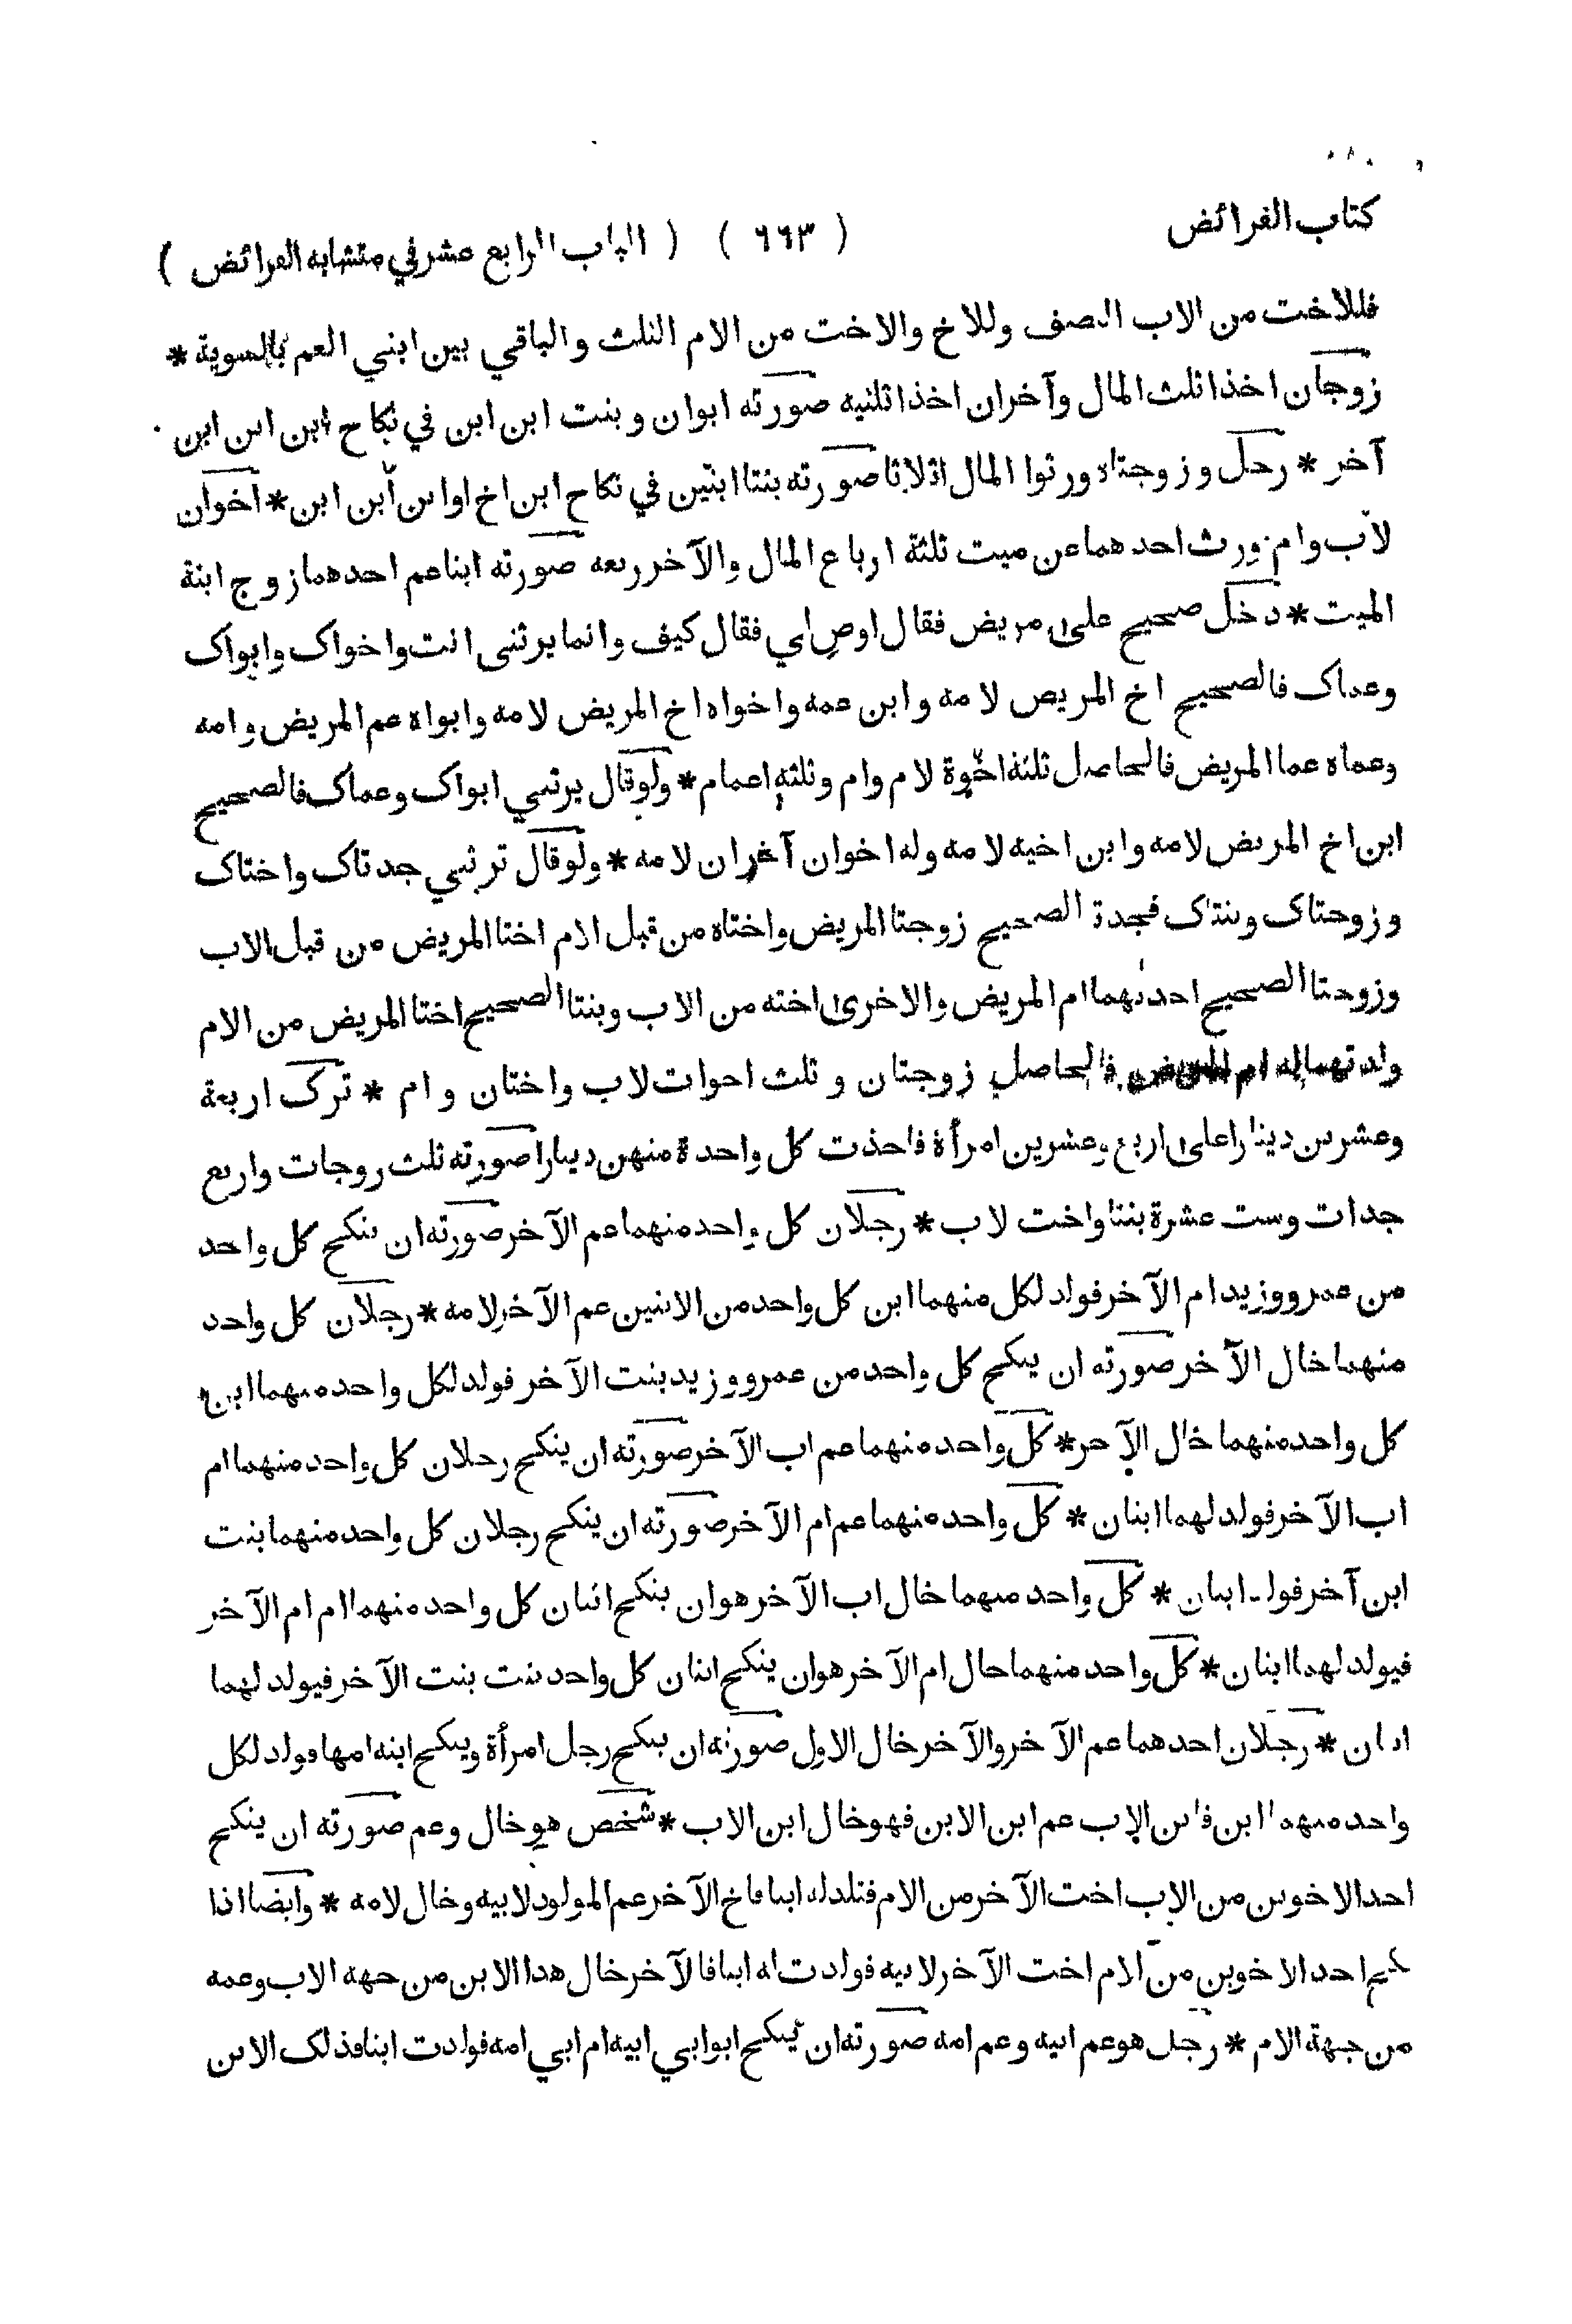 كتاب الفرائض ( ٦٦٣ ) ( الباب الرابع عشر في متشابه الفرائض )
فللاخت من الاب النصف وللاخ والاخت من الام الثلث والباقي بين ابني العم بالسوية *
زوجان اخذا ثلث المال وآخران اخذا ثلثيه صورته ابوان وبنت ابن ابن في نكاح ابن ابن ابن
آخر * رجل وزوجتاه ورثوا المال اثلاثا صورته بنتا ابنين في نكاح ابن اخ او ابن ابن ابن * اخوان
لاب وام ورث احدهما عن ميت ثلثة ارباع المال والآخر ربعه صورته ابنا عم احدهما زوج ابنة
الميت * دخل صحيح على مريض فقال اوص لي فقال كيف وانما يرثني انت واخواك وابواك
وعماك فالصحيح اخ المريض لامه وابن عمه واخواه اخ المريض لامه وابواه عم المريض وامه
وعماه عما المريض فالحاصل ثلثة اخوة لام وام وثلثة اعمام * ولو قال يرثني ابواك وعماك فالصحيح
ابن اخ المريض لامه وابن اخيه لامه وله اخوان آخران لامه * ولو قال ترثني جدتاك واختاك
وزوجتاك وبنتاك فجدتا الصحيح زوجتا المريض واختاه من قبل الام اختا المريض من قبل الاب
وزوجتا الصحيح احدٰهما ام المريض والاخرى اخته من الاب وبنتا الصحيح اختا المريض من الام
ولدتهما له ام المريض فالحاصل زوجتان وثلث اخوات لاب واختان وام * ترك اربعة
وعشرين دينارا على اربع وعشرين امرأة فاخذت كل واحدة منهن دينارا صورته ثلث زوجات واربع
جدات وست عشرة بنتا واخت لاب * رجلان كل واحد منهما عم الآخر صورته ان ينكح كل واحد
من عمرو وزيد ام الآخر فولد لكل منهما ابن كل واحد من الابنين عم الآخر لامه * رجلان كل واحد
منهما خال الآخر صورته ان ينكح كل واحد من عمرو وزيد بنت الآخر فولد لكل واحد منهما ابن
كل واحد منهما خال الآخر * كل واحد منهما عم اب الآخر صورته ان ينكح رجلان كل واحد منهما ام
اب الآخر فولد لهما ابنان * كل واحد منهما عم ام الآخر صورته ان ينكح رجلان كل واحد منهما بنت
ابن آخر فولد ابنان * كل واحد منهما خال اب الآخر هو ان ينكح اثنان كل واحد منهما ام ام الآخر
فيولد لهما ابنان * كل واحد منهما خال ام الآخر هو ان ينكح اثنان كل واحد بنت بنت الآخر فيولد لهما
ابنان * رجلان احدهما عم الآخر والآخر خال الاول صورته ان ينكح رجل امرأة وينكح ابنه امها فولد لكل
واحد منهما ابن فابن الاب عم ابن الابن فهو خال ابن الاب * شخص هو خال وعم صورته ان ينكح
احد الاخوين من الاب اخت الآخر من الام فتلد له ابنا فاخ الآخر عم المولود لابيه وخال لامه * وايضا اذا
نكح احد الاخوين من الام اخت الآخر لابيه فولدت له ابنا فالآخر خال هذا الابن من جهة الاب وعمه
من جهة الام * رجل هو عم ابيه وعم امه صورته ان ينكح ابو ابي ابيه ام ابي امه فولدت ابنا فذلك الابن